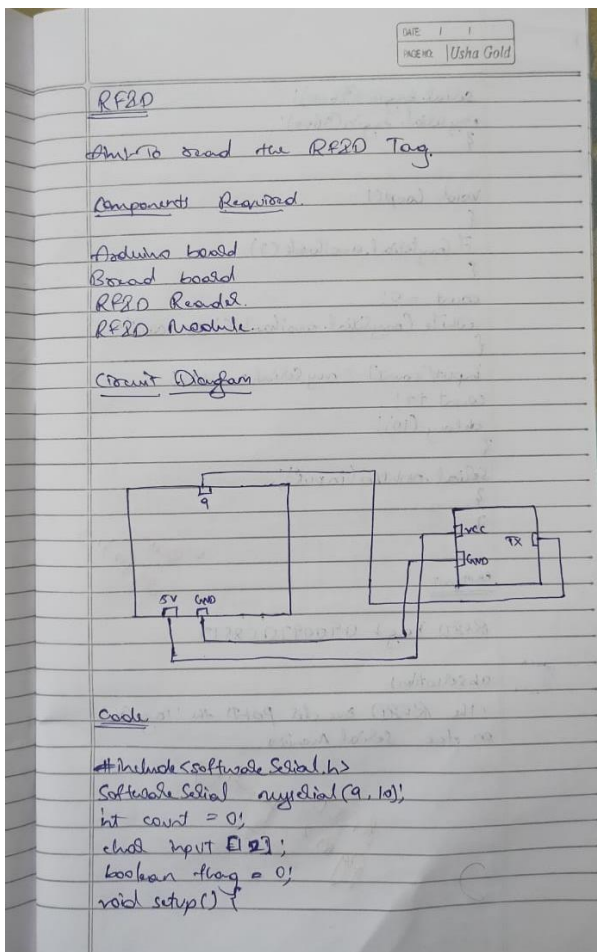 DATE / /
PAGE NO. Usha Gold
RFID
Aim:- To read the RFID Tag.
Components Required.
Arduino board
Bread board
RFID Reader.
RFID Module.
Circuit Diagram
9
VCC
TX
GND
5V GND
Code
#include<softwareSerial.h>
SoftwareSerial myserial(9,10);
int count = 0;
char input [12];
boolean flag = 0;
void setup() {